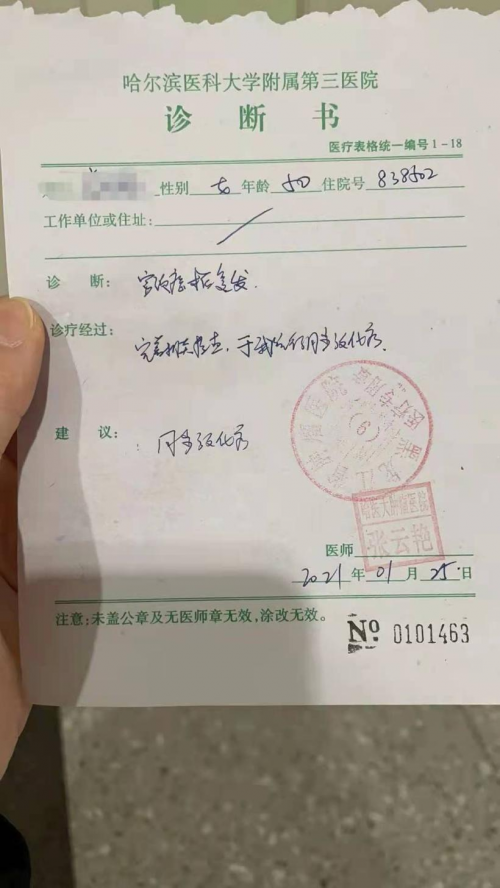 哈尔滨医科大学附属第三医院
诊断书
医疗表格统一编号1-18
性别 女 年龄 50 住院号 838502
工作单位或住址:
诊 断: 宫颈癌术后复发.
诊疗经过: 完善相关检查, 于我院行同步放化疗.
建 议: 同步放化疗
黑龙江省肿瘤医院
医疗专用章
(6)
哈医大肿瘤医院
张云艳
医师
2021年01月25日
注意:未盖公章及无医师章无效,涂改无效。
№ 0101463